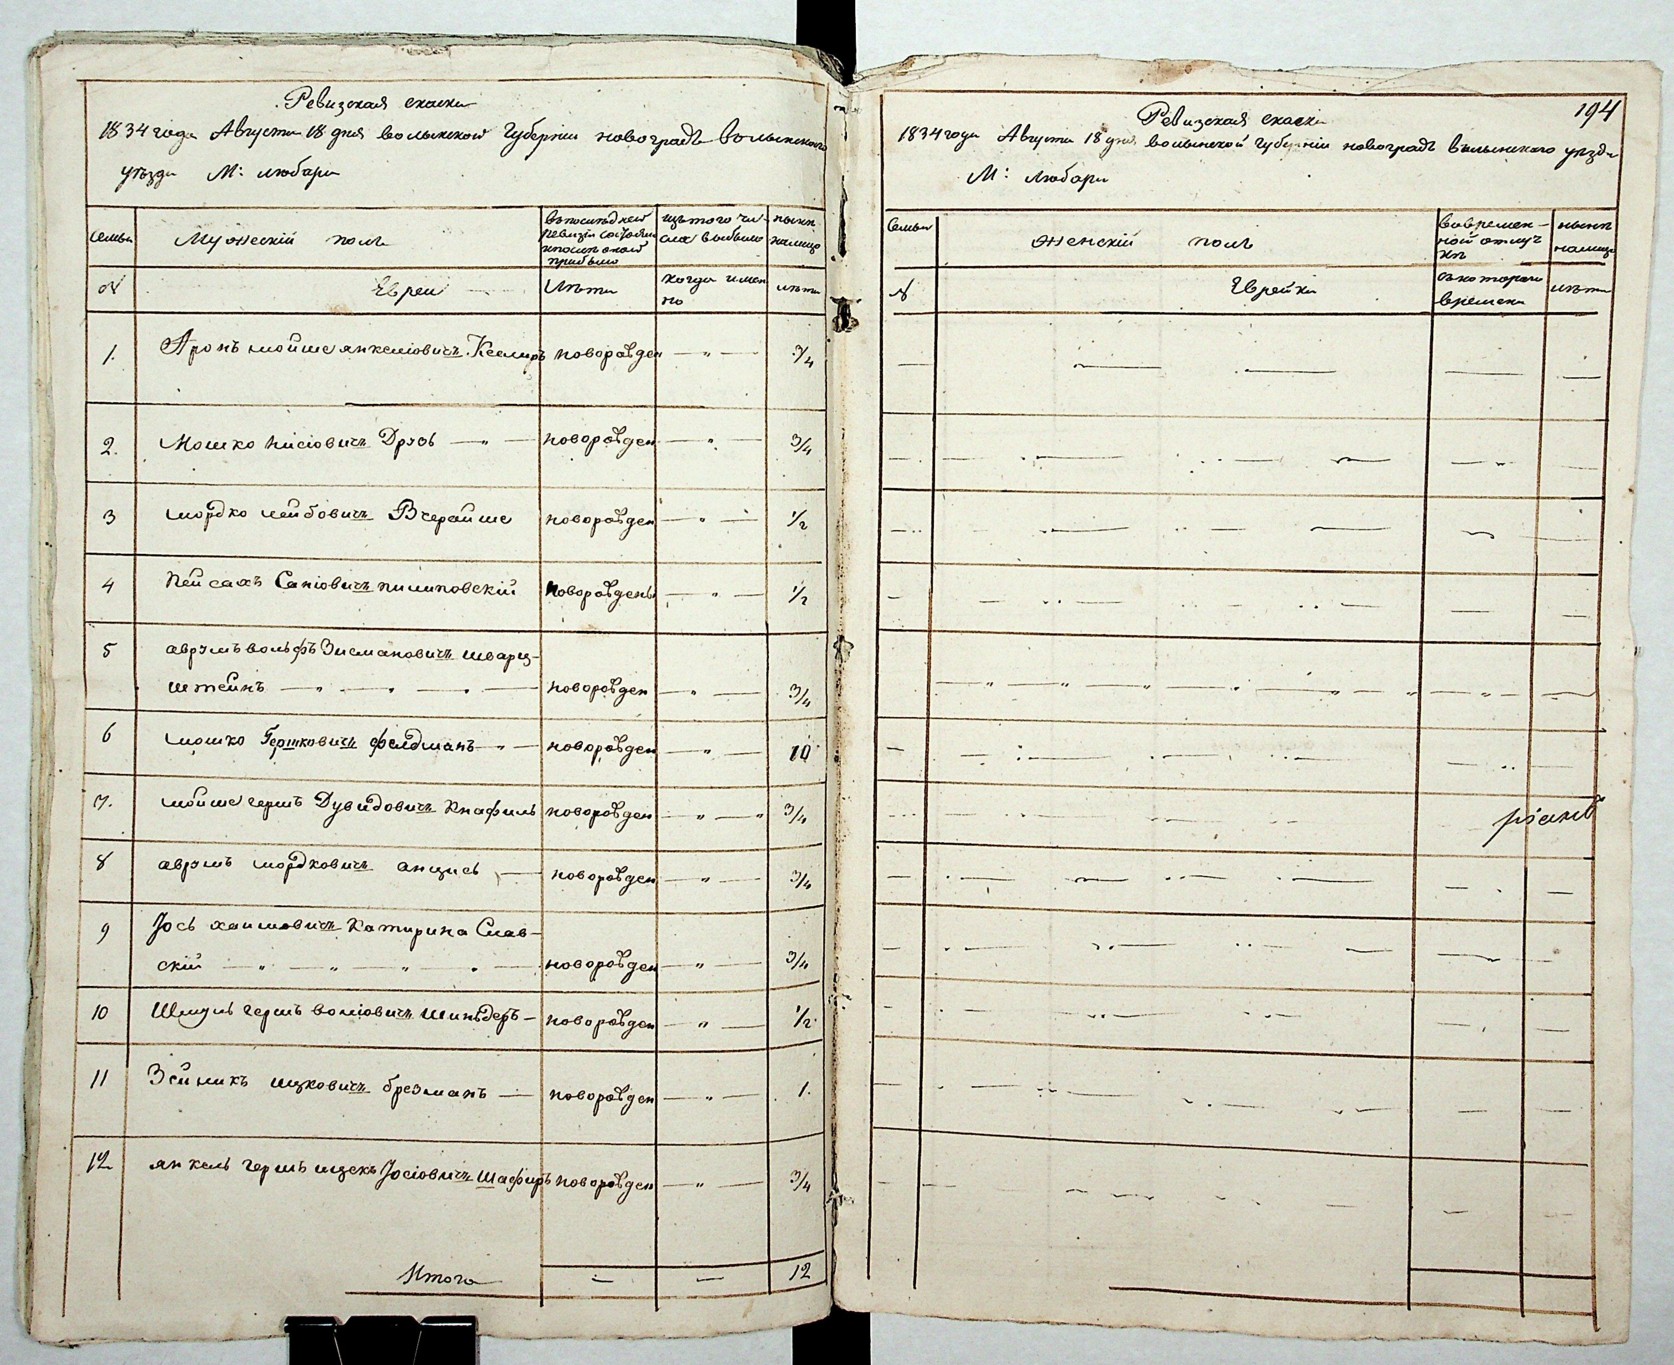 Ревизская сказка
1834 года Августа 18 дня волынской Губернии новоградъ волынского
уѣзда М: любара
Семьи
Мужескій полъ
въ последней ревизіи состояло и после оной прибыло
изъ того числа выбыло
ныне на лицо
№ Евреи Лѣта когда именно лѣта
1. Аронъ мойше янкеліовичъ новорожден — " — 3/4
2. Мошко нисіовичъ Друсь — " — новорожден — " — 3/4
3 мордко лейбовичъ Вчерайше новорожден — " — 1/2
4 Пейсахъ пилиповскій новорожденъ — " — 1/2
5 аврумъ вольфъ Зисмановичъ шварц-
штейнъ — " — " — " — новорожден — " — 3/4
6 мошко Гершковичъ фелдманъ — " — новорожден — " — 10
7. мойше гершъ Дувидовичъ Кнафиль новорожден — " — " 3/4
8 аврумъ мордковичъ анцись — новорожден — " — 3/4
9 Іось хаимовичъ Катирина Слав-
скій — " — " — " — " — новорожден — " — 3/4
10 Шмуль гершъ воліовичъ шнайдеръ — новорожден — " — 1/2
11 Зейликъ ицковичъ брезманъ — новорожден — " — 1.
12 янкель гершъ ицекъ Іосіовичъ Шафиръ новорожден — " — 3/4
Итого — — 12
194
Ревизская сказка
1834 года Августа 18 дня волынской Губерніи новоградъ волынского уѣзда
М: Любара
Семьи
женскій полъ
во временной отлучке
ныне на лицо
№ Еврейки съ котораго времени лѣта